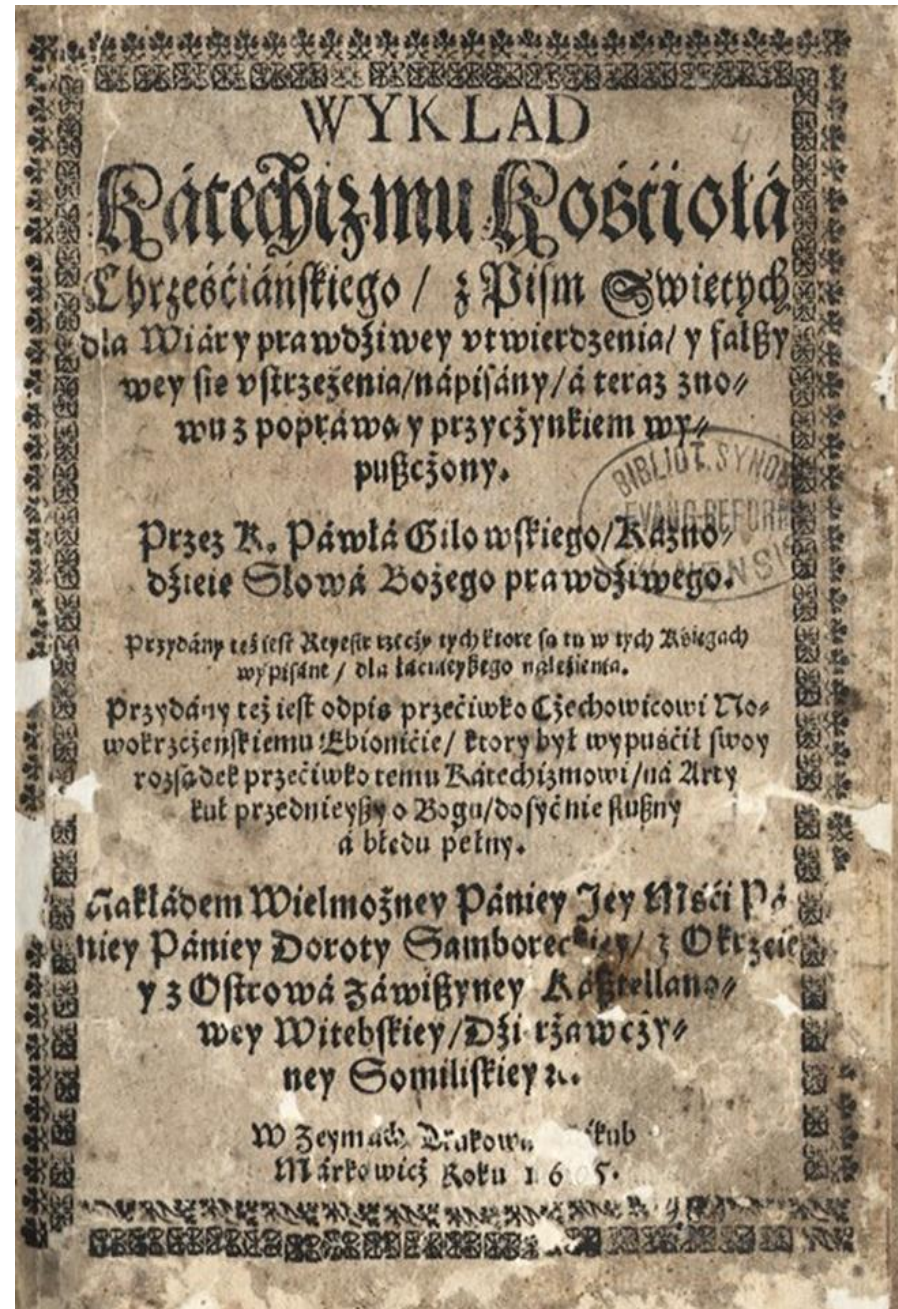 WYKLAD
Kátechizmu Kośćiołá
Chrześćiáńskiego / z Pism Swiętych
dla Wiáry prawdźiwey vtwierdzenia/ y falßy
wey sie vstrzeżenia/nápisány/á teraz zno⸗
wu z popráwą y przycżynkiem wy⸗
pußcżony.
Przez K. Páwłá Gilowskiego/Káżno⸗
dźieię Słowá Bożego prawdźiwego.
Przydány też iest Reyestr rzecży tych ktore są tu w tych Kśięgach
wypisáne / dla łácnieyßego nalezienia.
Przydány też iest odpis przećiwko Cżechowicowi No⸗
wokrzcżeńskiemu Ebionićie/ ktory był wypuśćił swoy
rozsądek przećiwko temu Kátechizmowi/ná Arty
kuł przednieyßy o Bogu/dosyć nie słußny
á błędu pełny.
Nakłádem Wielmożney Pániey Jey Mśći Pá
niey Pániey Doroty Samboreckiey/ z Okrzeie
y z Ostrowá Záwißyney Káßtellano⸗
wey Witebskiey/Dźierżawcży⸗
ney Somiliskiey ꝛc.
W Zeymách
Márkowicż Roku 1605.
BIBLIOT. SYNOD.
EVANG. REFORM.